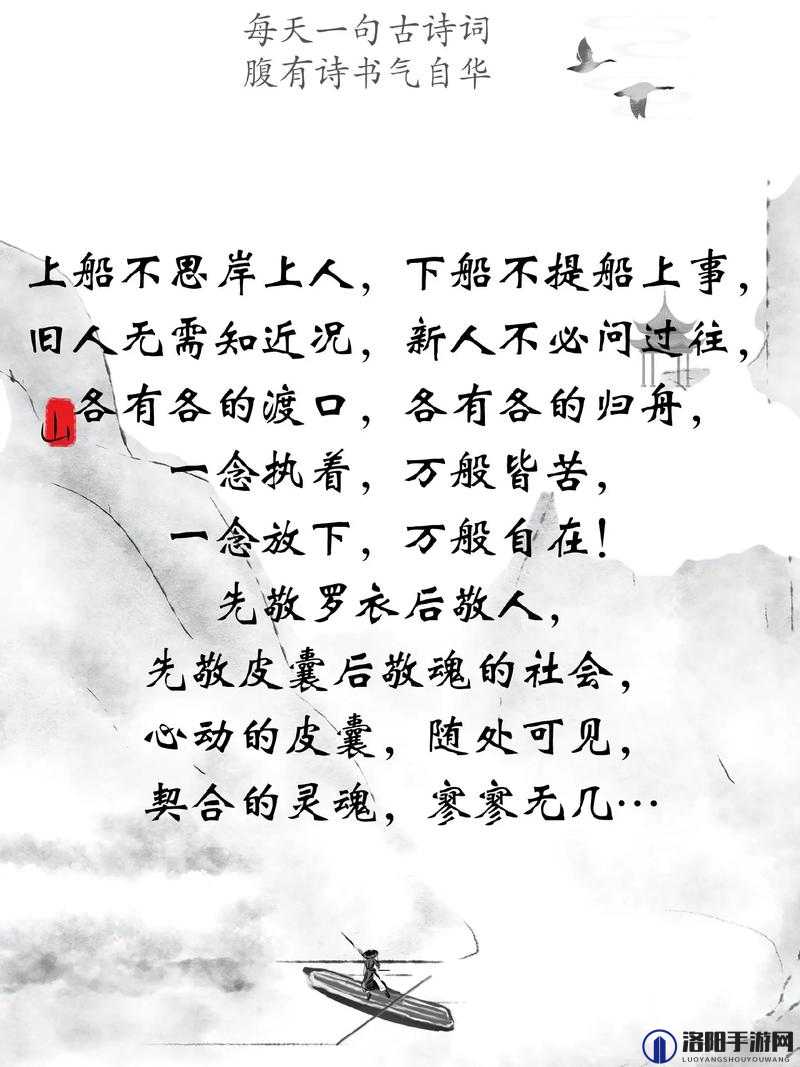 每天一句古诗词
腹有诗书气自华
上船不思岸上人，下船不提船上事，
旧人无需知近况，新人不必问过往，
各有各的渡口，各有各的归舟，
山
一念执着，万般皆苦，
一念放下，万般自在！
先敬罗衣后敬人，
先敬皮囊后敬魂的社会，
心动的皮囊，随处可见，
契合的灵魂，寥寥无几…
洛阳手游网
LUOYANGSHOUYOUWANG